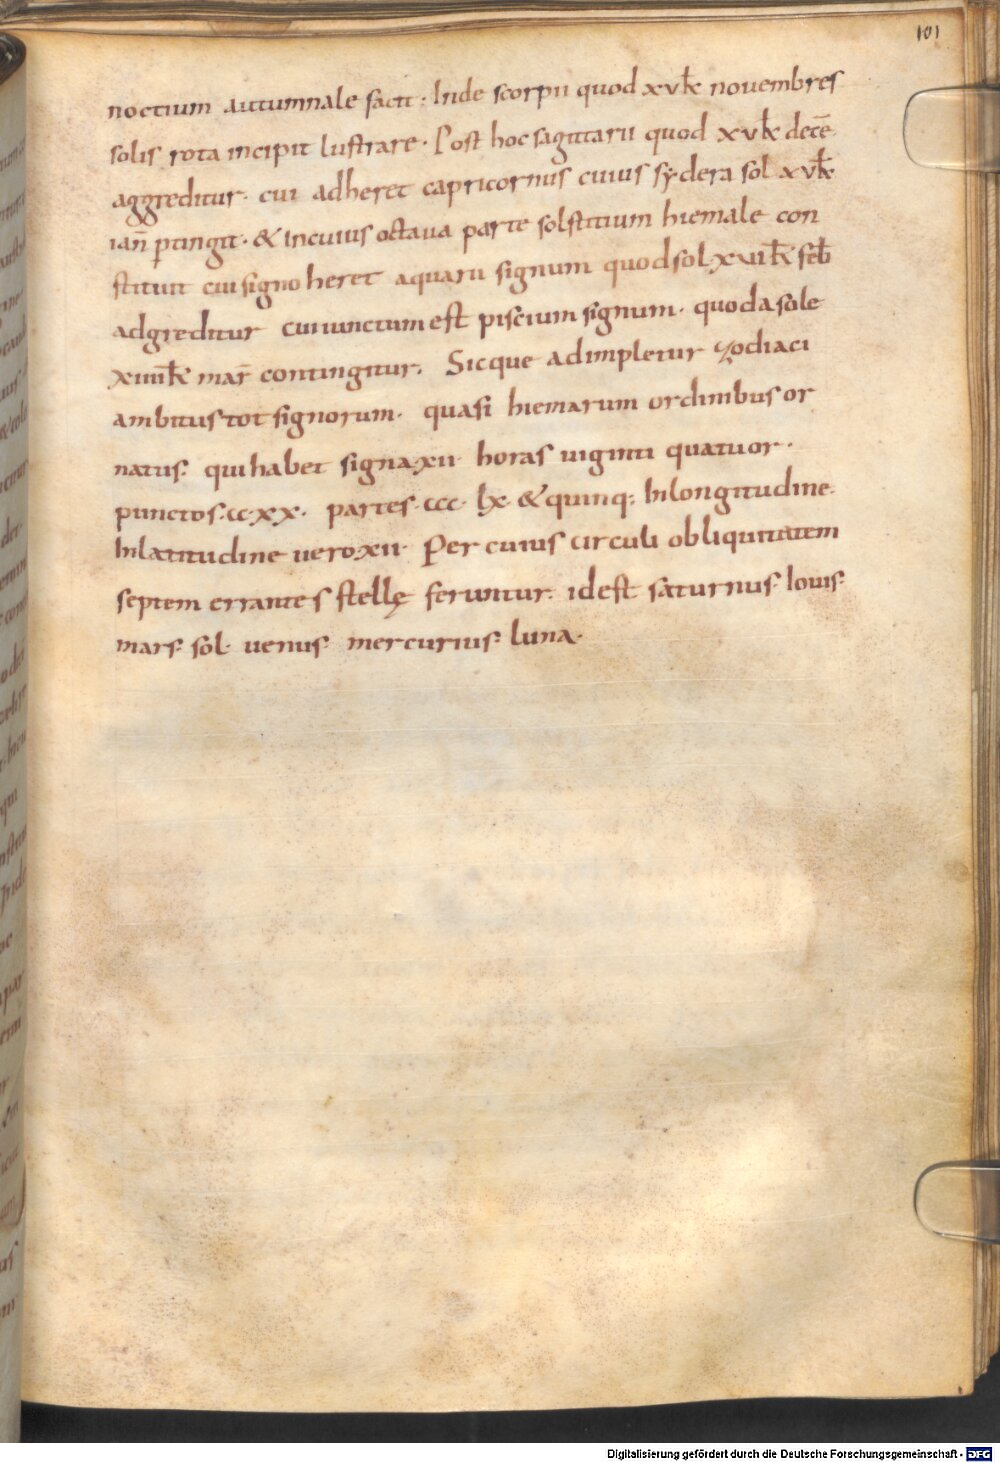 101
noctium autumnale facit : Inde scorpii quod xv kł novembres
solis rota incipit lustrare · Post hoc sagittarii quod xv kł decē
aggreditur · cui adheret capricornus cuius sydera sol xv kł
ian̄ ꝑtingit · & in cuius octava parte solstitium hiemale con
stituit cui signo heret aquarii signum quod sol xvii kł feb̄
adgreditur cui iunctum est piscium signum · quod a sole
xiiii kł mar̄ contingitur · Sicque adimpletur zodiaci
ambitus tot signorum · quasi hiemarum ordinibus or
natus · qui habet signa xii · horas viginti quatuor ·
punctos · cc · xx · partes · ccc · lx · & quinq; In longitudine ·
In latitudine vero xii · Per cuius circuli obliquitatem
septem errantes stellę feruntur · id est saturnus · Iovis ·
mars · sol · venus · mercurius · luna ·
Digitalisierung gefördert durch die Deutsche Forschungsgemeinschaft - DFG